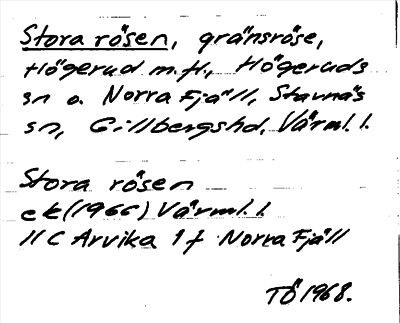 Stora rösen, gränsröse,
Högerud m.fl., Högeruds
sn o. Norra Fjäll, Stavnäs
sn, Gillbergshd, Värml. l.
Stora rösen
ek (1966) Värml. l.
11 C Arvika 1 f Norra Fjäll
TÖ 1968.